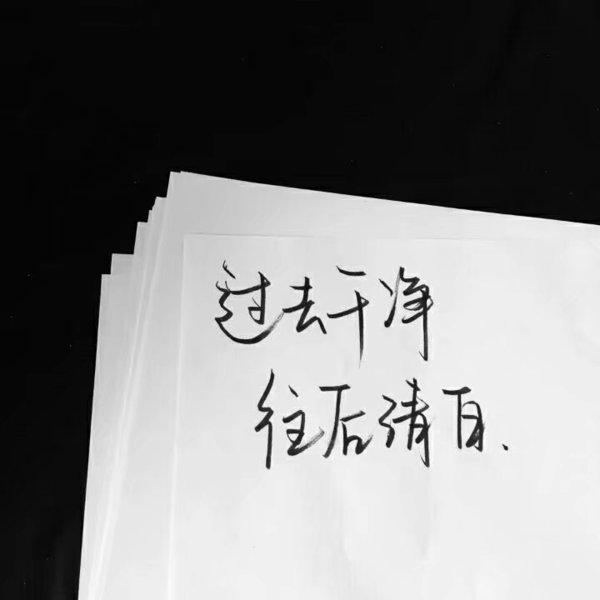 过去干净
往后清白.